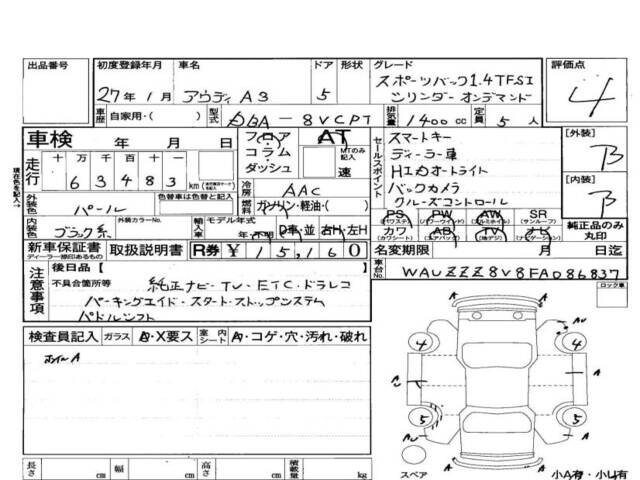 出品番号 初度登録年月 車名 ドア 形状 グレード 評価点
27年1月 アウディ A3 5 スポーツバック1.4TFSI
シリンダーオンデマンド 4
車歴 自家用・( ) 型式 DBA-8VCPT 排気量 1400cc 定員 5人
車検 年 月 日 フロア コラム・ダッシュ AT MTのみ記入 速
セールスポイント
スマートキー
ディーラー車
HIDオートライト
バックカメラ
クルーズコントロール
[外装] B
[内装] B
現在色を記入→
走行 十 万 千 百 十 一
63483 km
冷房 AAC
燃料 ガソリン・軽油・( )
外装色 パール 色替車は色替と記入
内装色 ブラック系 外装カラーNo. 輸入車 モデル年式 年・不明 D車・並 右H・左H
PS (パワーステアリング) PW (パワーウインド) AW (アルミホイル) SR (サンルーフ)
カワ (カワシート) AB (エアバッグ) TV (地デジ) ナビ (ナビゲーション)
純正品のみ丸印
新車保証書 ディーラー捺印あるもの 取扱説明書 R券 ¥15,160 名変期限 月 日迄
注意事項 後日品 [ ]
不具合箇所等 純正ナビ・TV・ETC・ドラレコ
パーキングエイド・スタートストップシステム
パドルシフト
車台No. WAUZZZ8V8FA086837
ロック車
検査員記入 ガラス A・X要ス 室内シート A・コゲ・穴・汚れ・破れ
ホイルA
A A AU
4 4
A A
5 5
A A
スペア 小A有・小U有
長さ cm 幅 cm 高さ cm 積載量 kg